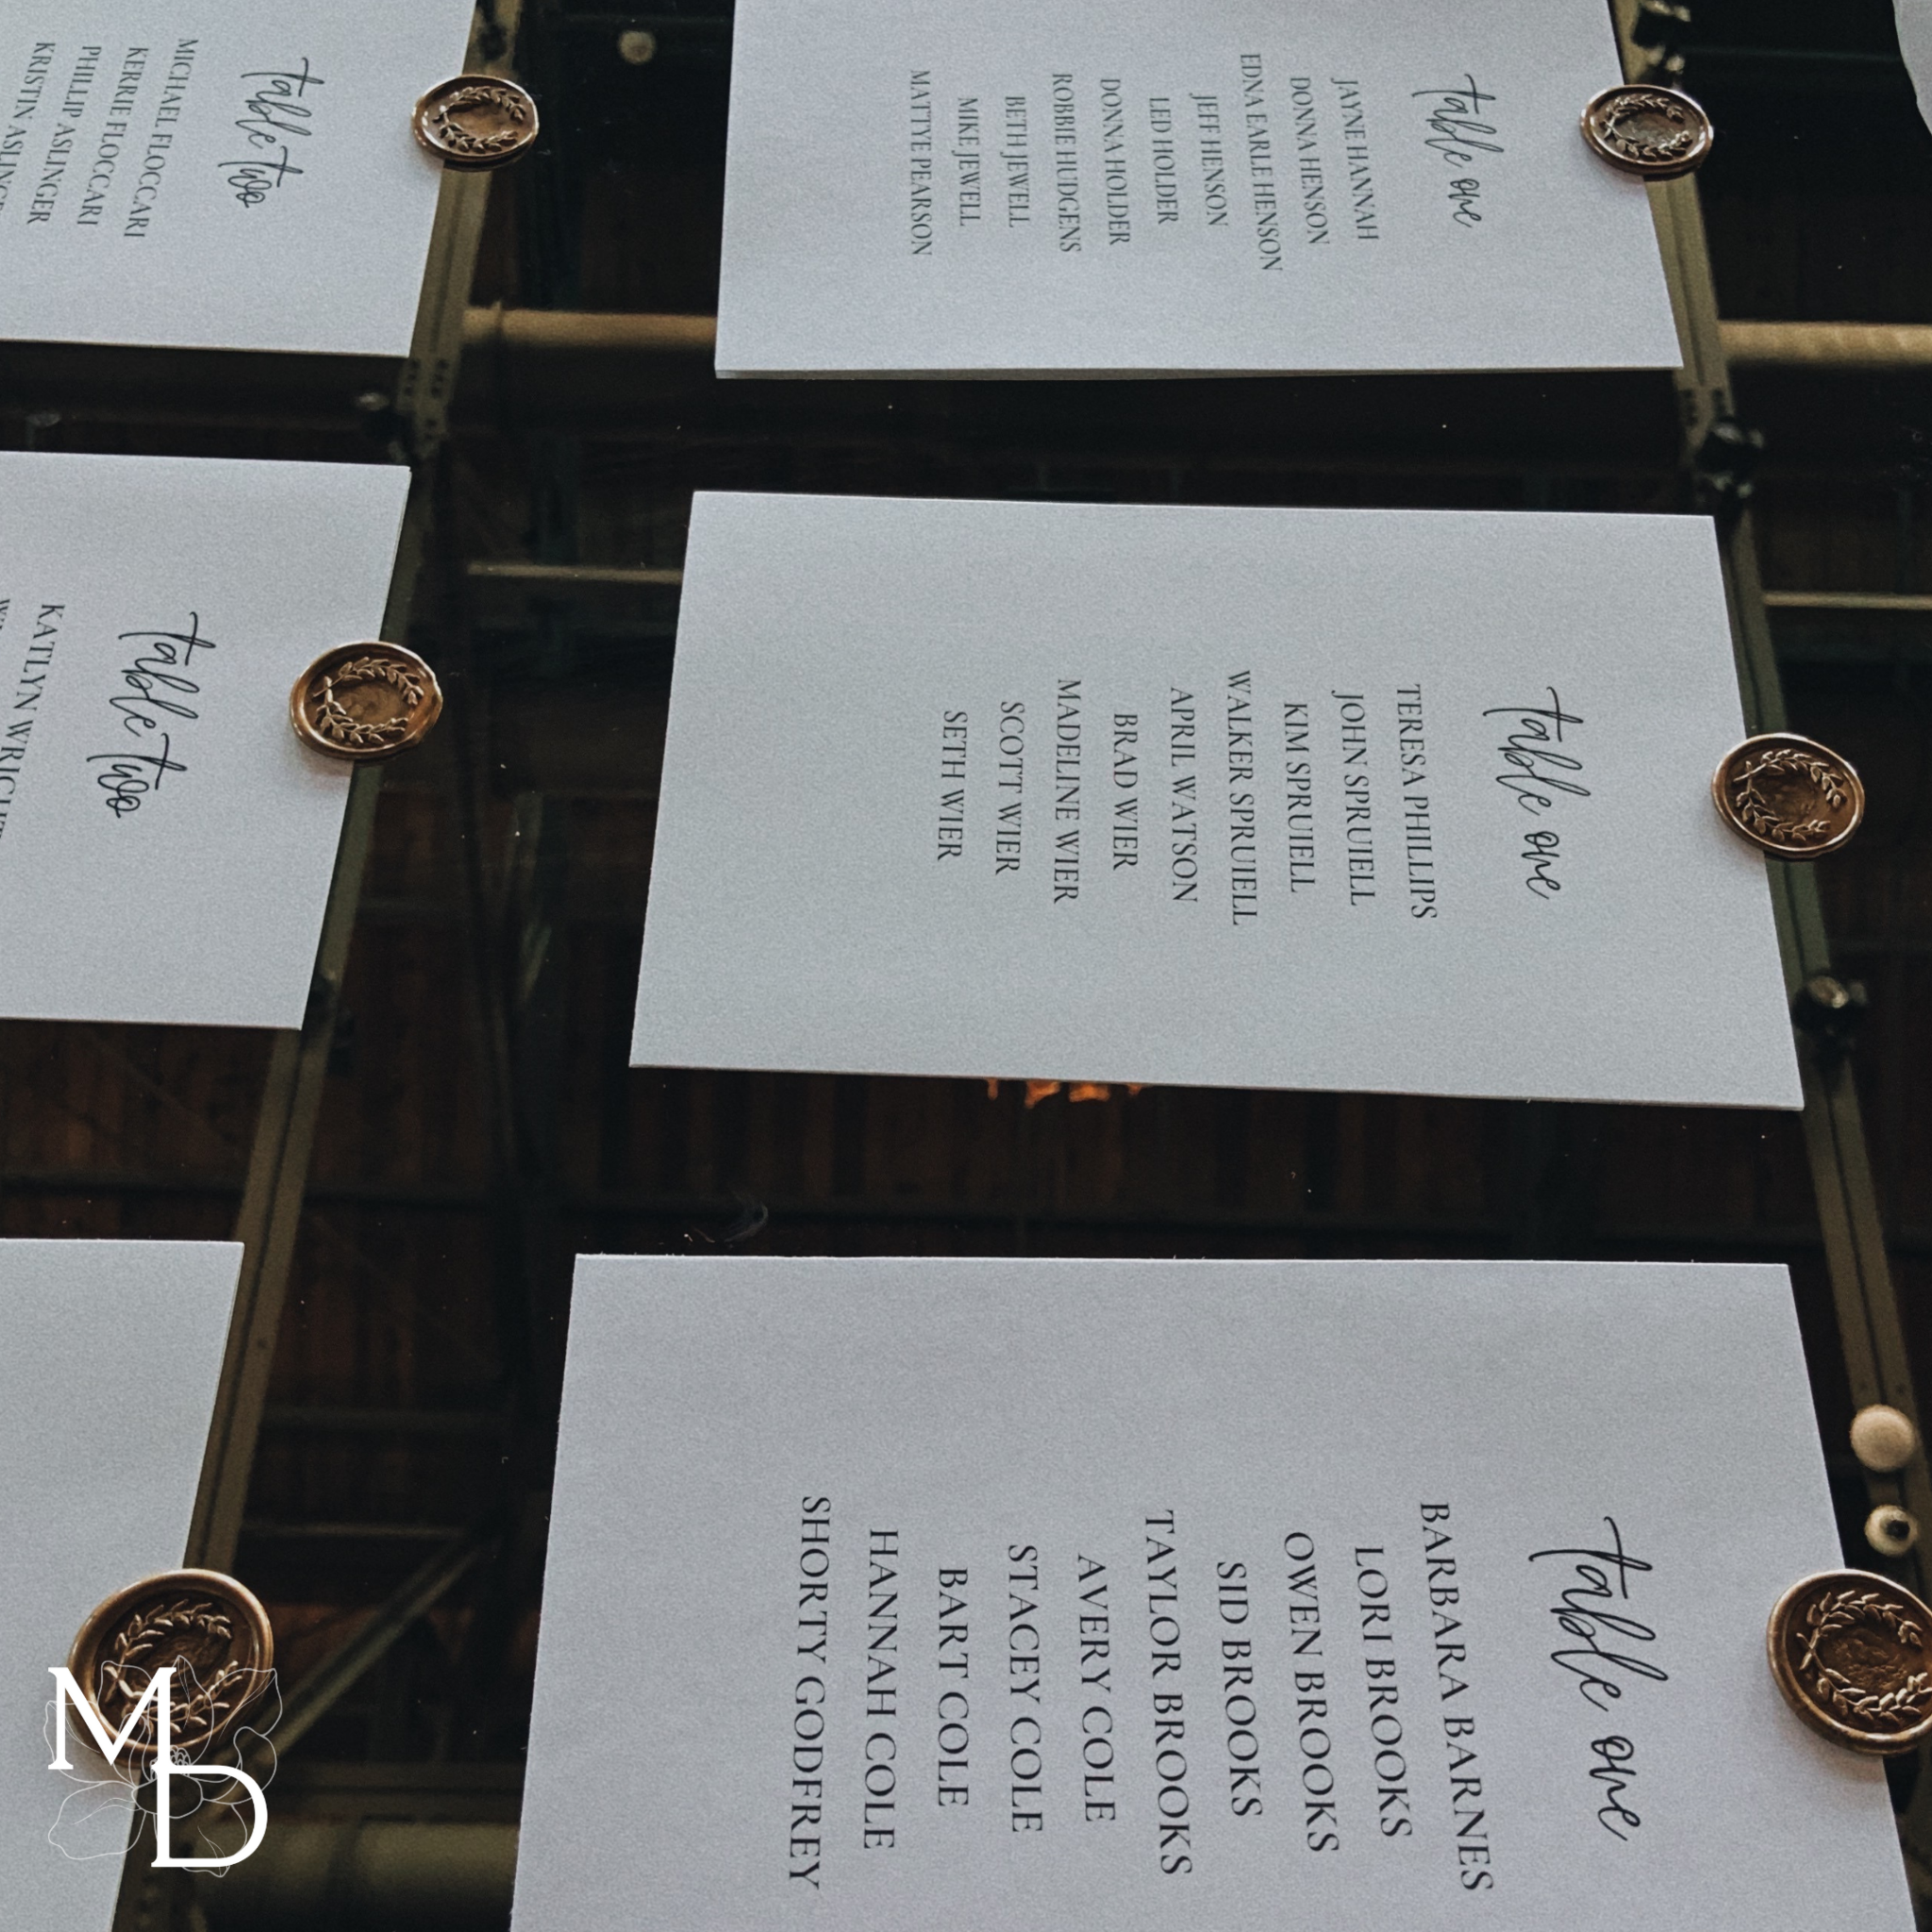 table one
BARBARA BARNES
LORI BROOKS
OWEN BROOKS
SID BROOKS
TAYLOR BROOKS
AVERY COLE
STACEY COLE
BART COLE
HANNAH COLE
SHORTY GODFREY
table one
TERESA PHILLIPS
JOHN SPRUIELL
KIM SPRUIELL
WALKER SPRUIELL
APRIL WATSON
BRAD WIER
MADELINE WIER
SCOTT WIER
SETH WIER
table one
JAYNE HANNAH
DONNA HENSON
EDNA EARLE HENSON
JEFF HENSON
LED HOLDER
DONNA HOLDER
ROBBIE HUDGENS
BETH JEWELL
MIKE JEWELL
MATTYE PEARSON
table two
KATLYN WRIGHT
table two
MICHAEL FLOCCARI
KERRIE FLOCCARI
PHILLIP ASLINGER
KRISTIN ASLINGER
MD